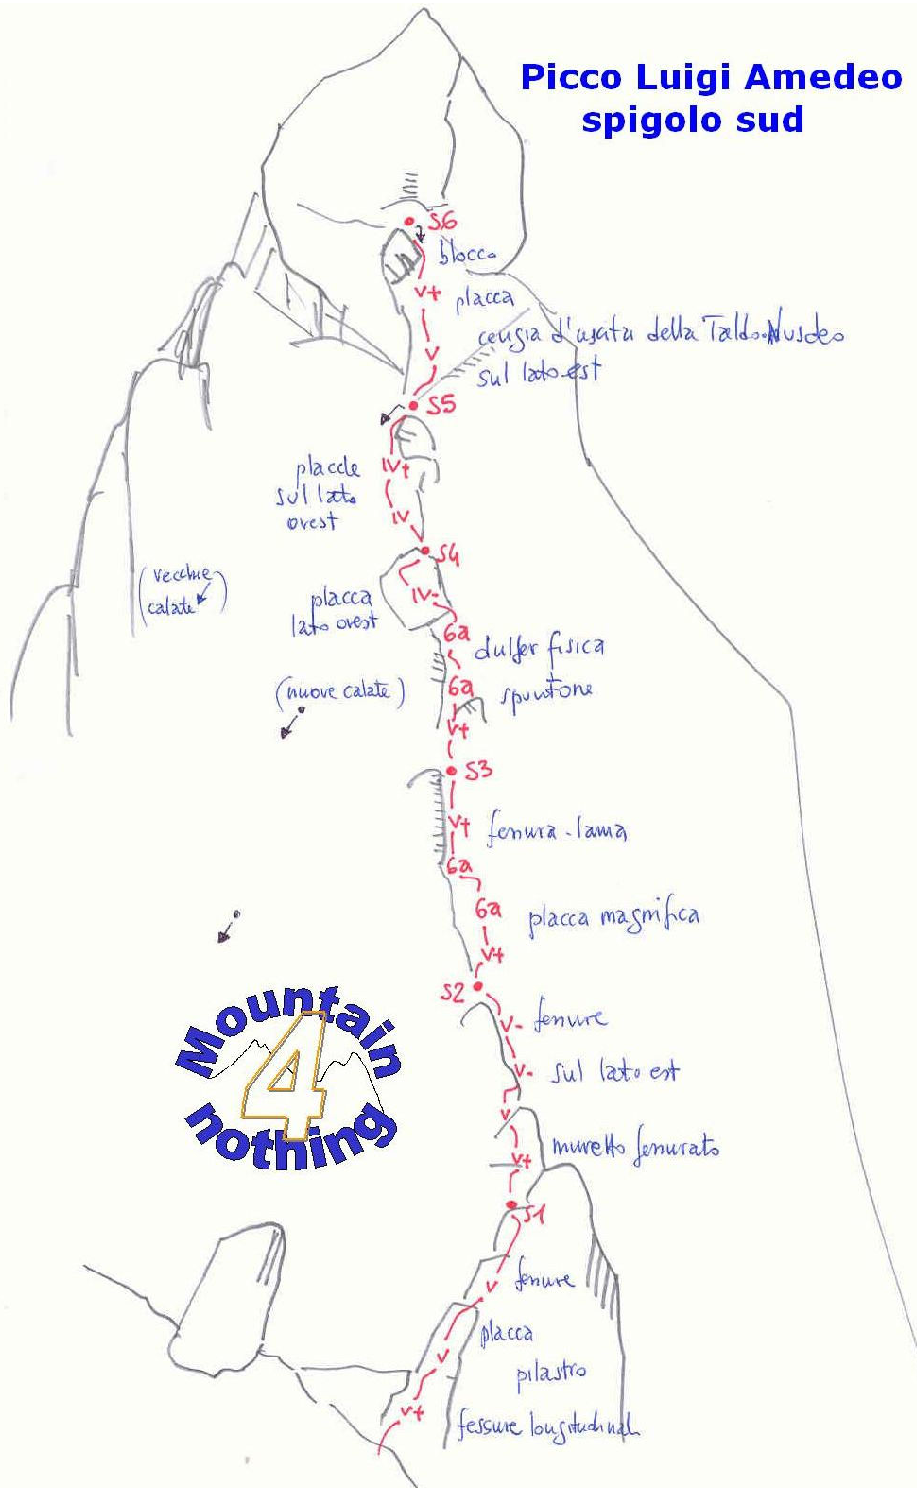 Picco Luigi Amedeo
spigolo sud
S6
blocco
V+
placca
cengia d'uscita della Taldo-Nusdeo
V
sul lato est
S5
IV+
placche
sul lato
ovest
IV
S4
(vecchie
calate)
IV-
placca
lato ovest
6a
dulfer fisica
6a
spuntone
(nuove calate)
V+
S3
V+
fessura-lama
6a
6a
placca magnifica
V+
S2
V-
fessure
V-
sul lato est
V
V+
muretto fessurato
S1
Mountain
4
nothing
V
fessure
placca
V
pilastro
V+
fessure longitudinali